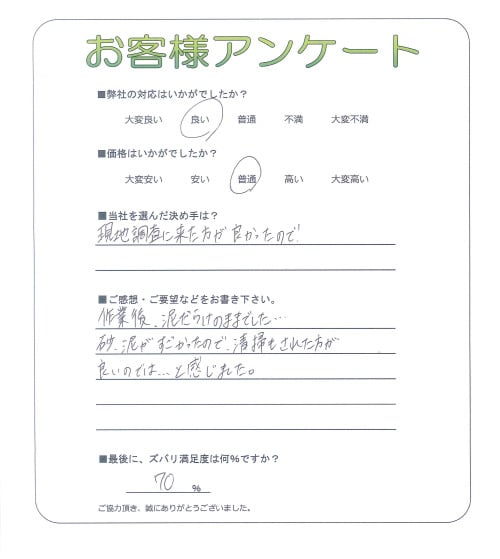 お客様アンケート
■弊社の対応はいかがでしたか？
大変良い 良い 普通 不満 大変不満
■価格はいかがでしたか？
大変安い 安い 普通 高い 大変高い
■当社を選んだ決め手は？
現地調査に来た方が良かったので
■ご感想・ご要望などをお書き下さい。
作業後、泥だらけのままでした…
砂、泥がすごかったので、清掃もされた方が
良いのでは…と感じました。
■最後に、ズバリ満足度は何%ですか？
70 %
ご協力頂き、誠にありがとうございました。